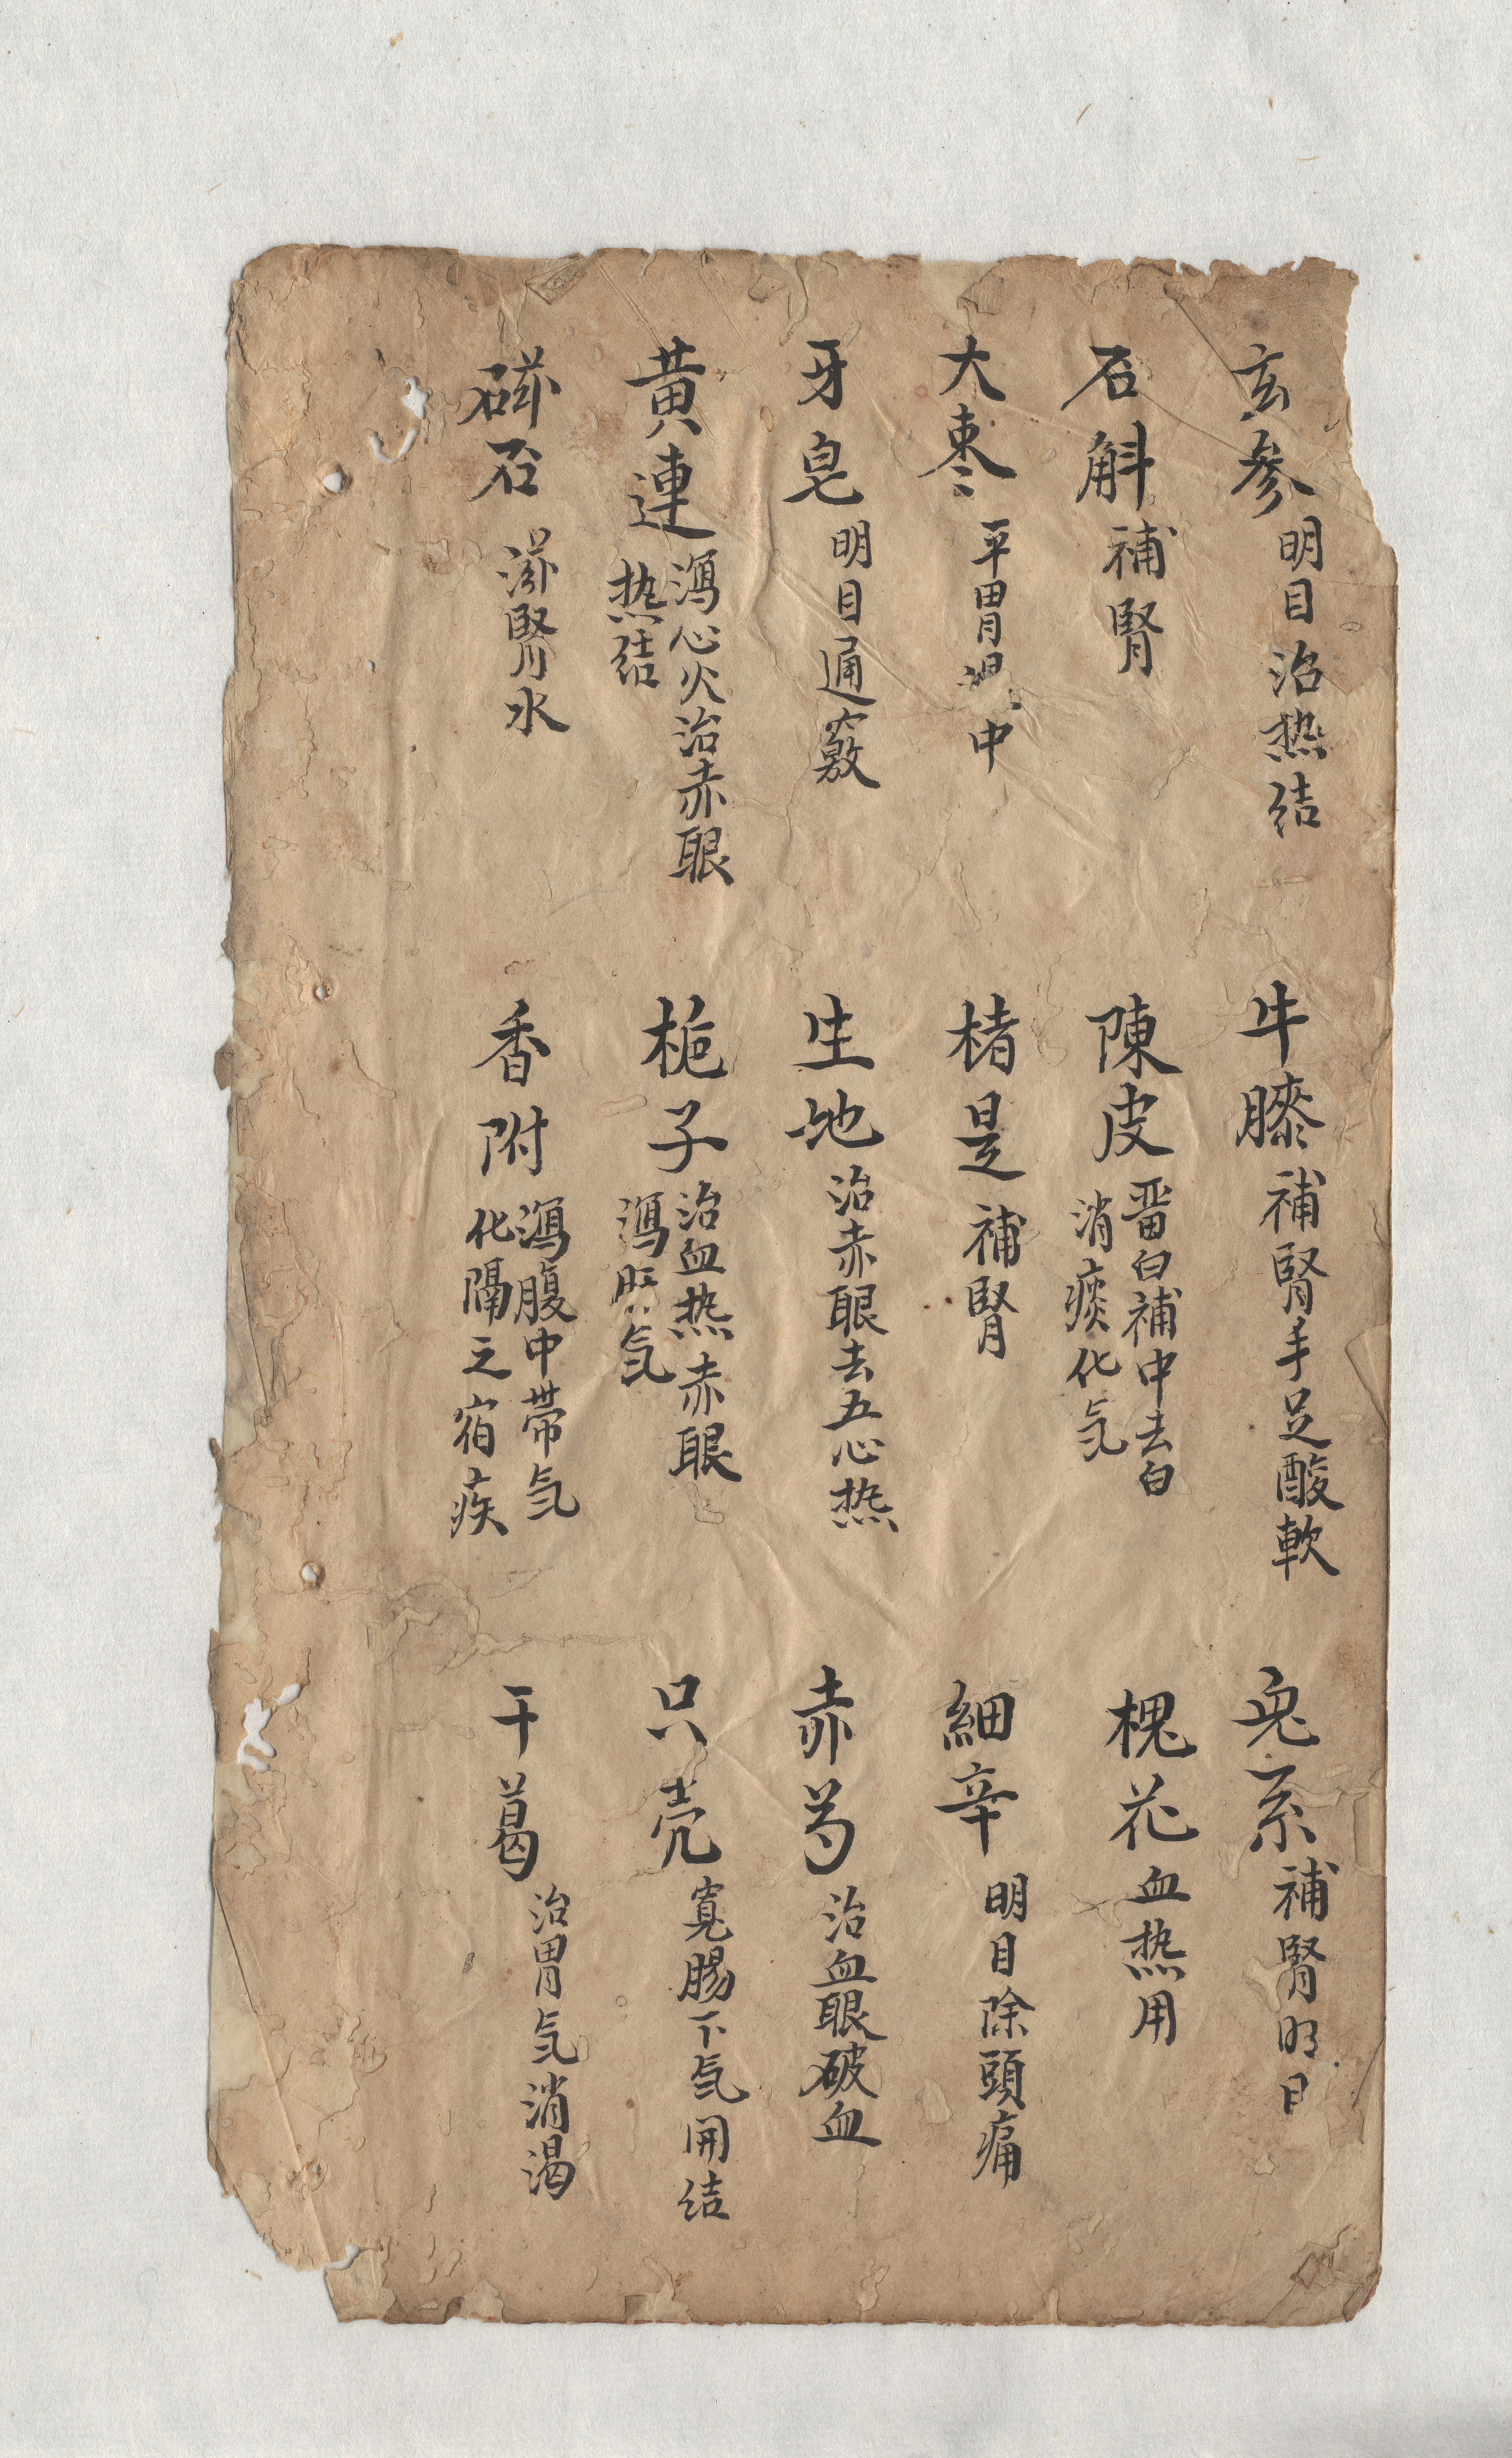 玄参 明目治热结
牛膝 補腎手足酸軟
兔糸 補腎明目
石斛 補腎
陳皮 畱白補中去白
消痰化氕
槐花 血热用
大枣 平胃 中
楮是 補腎
細辛 明目除頭痛
牙皂 明目通竅
生地 治赤眼去五心热
赤芍 治血眼破血
黄連 瀉心火治赤眼
热结
梔子 治血热赤眼
瀉肝氕
只壳 寬腸下氕開结
磁石 滋腎水
香附 瀉腹中帶氕
化隔之宿疾
干葛 治胃氕消渴